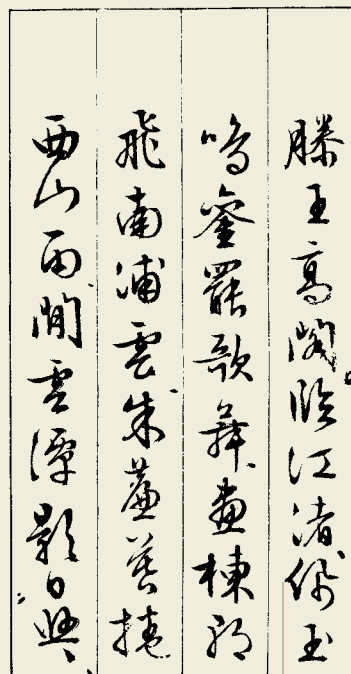 滕王高閣臨江渚佩玉
鳴鑾罷歌舞畫棟朝
飛南浦雲朱簾暮捲
西山雨閒雲潭影日悠